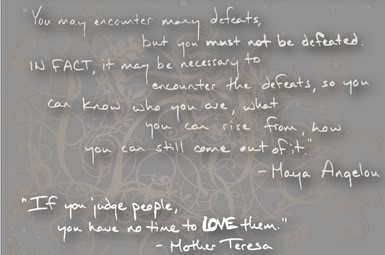 "You may encounter many defeats,
but you must not be defeated.
IN FACT, it may be necessary to
encounter the defeats, so you
can know who you are, what
you can rise from, how
you can still come out of it."
- Maya Angelou
"If you judge people,
you have no time to LOVE them."
- Mother Teresa